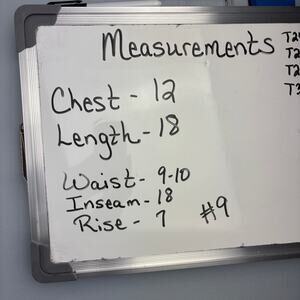 Measurements
Chest - 12
Length - 18
Waist - 9-10
Inseam - 18
Rise - 7
#9